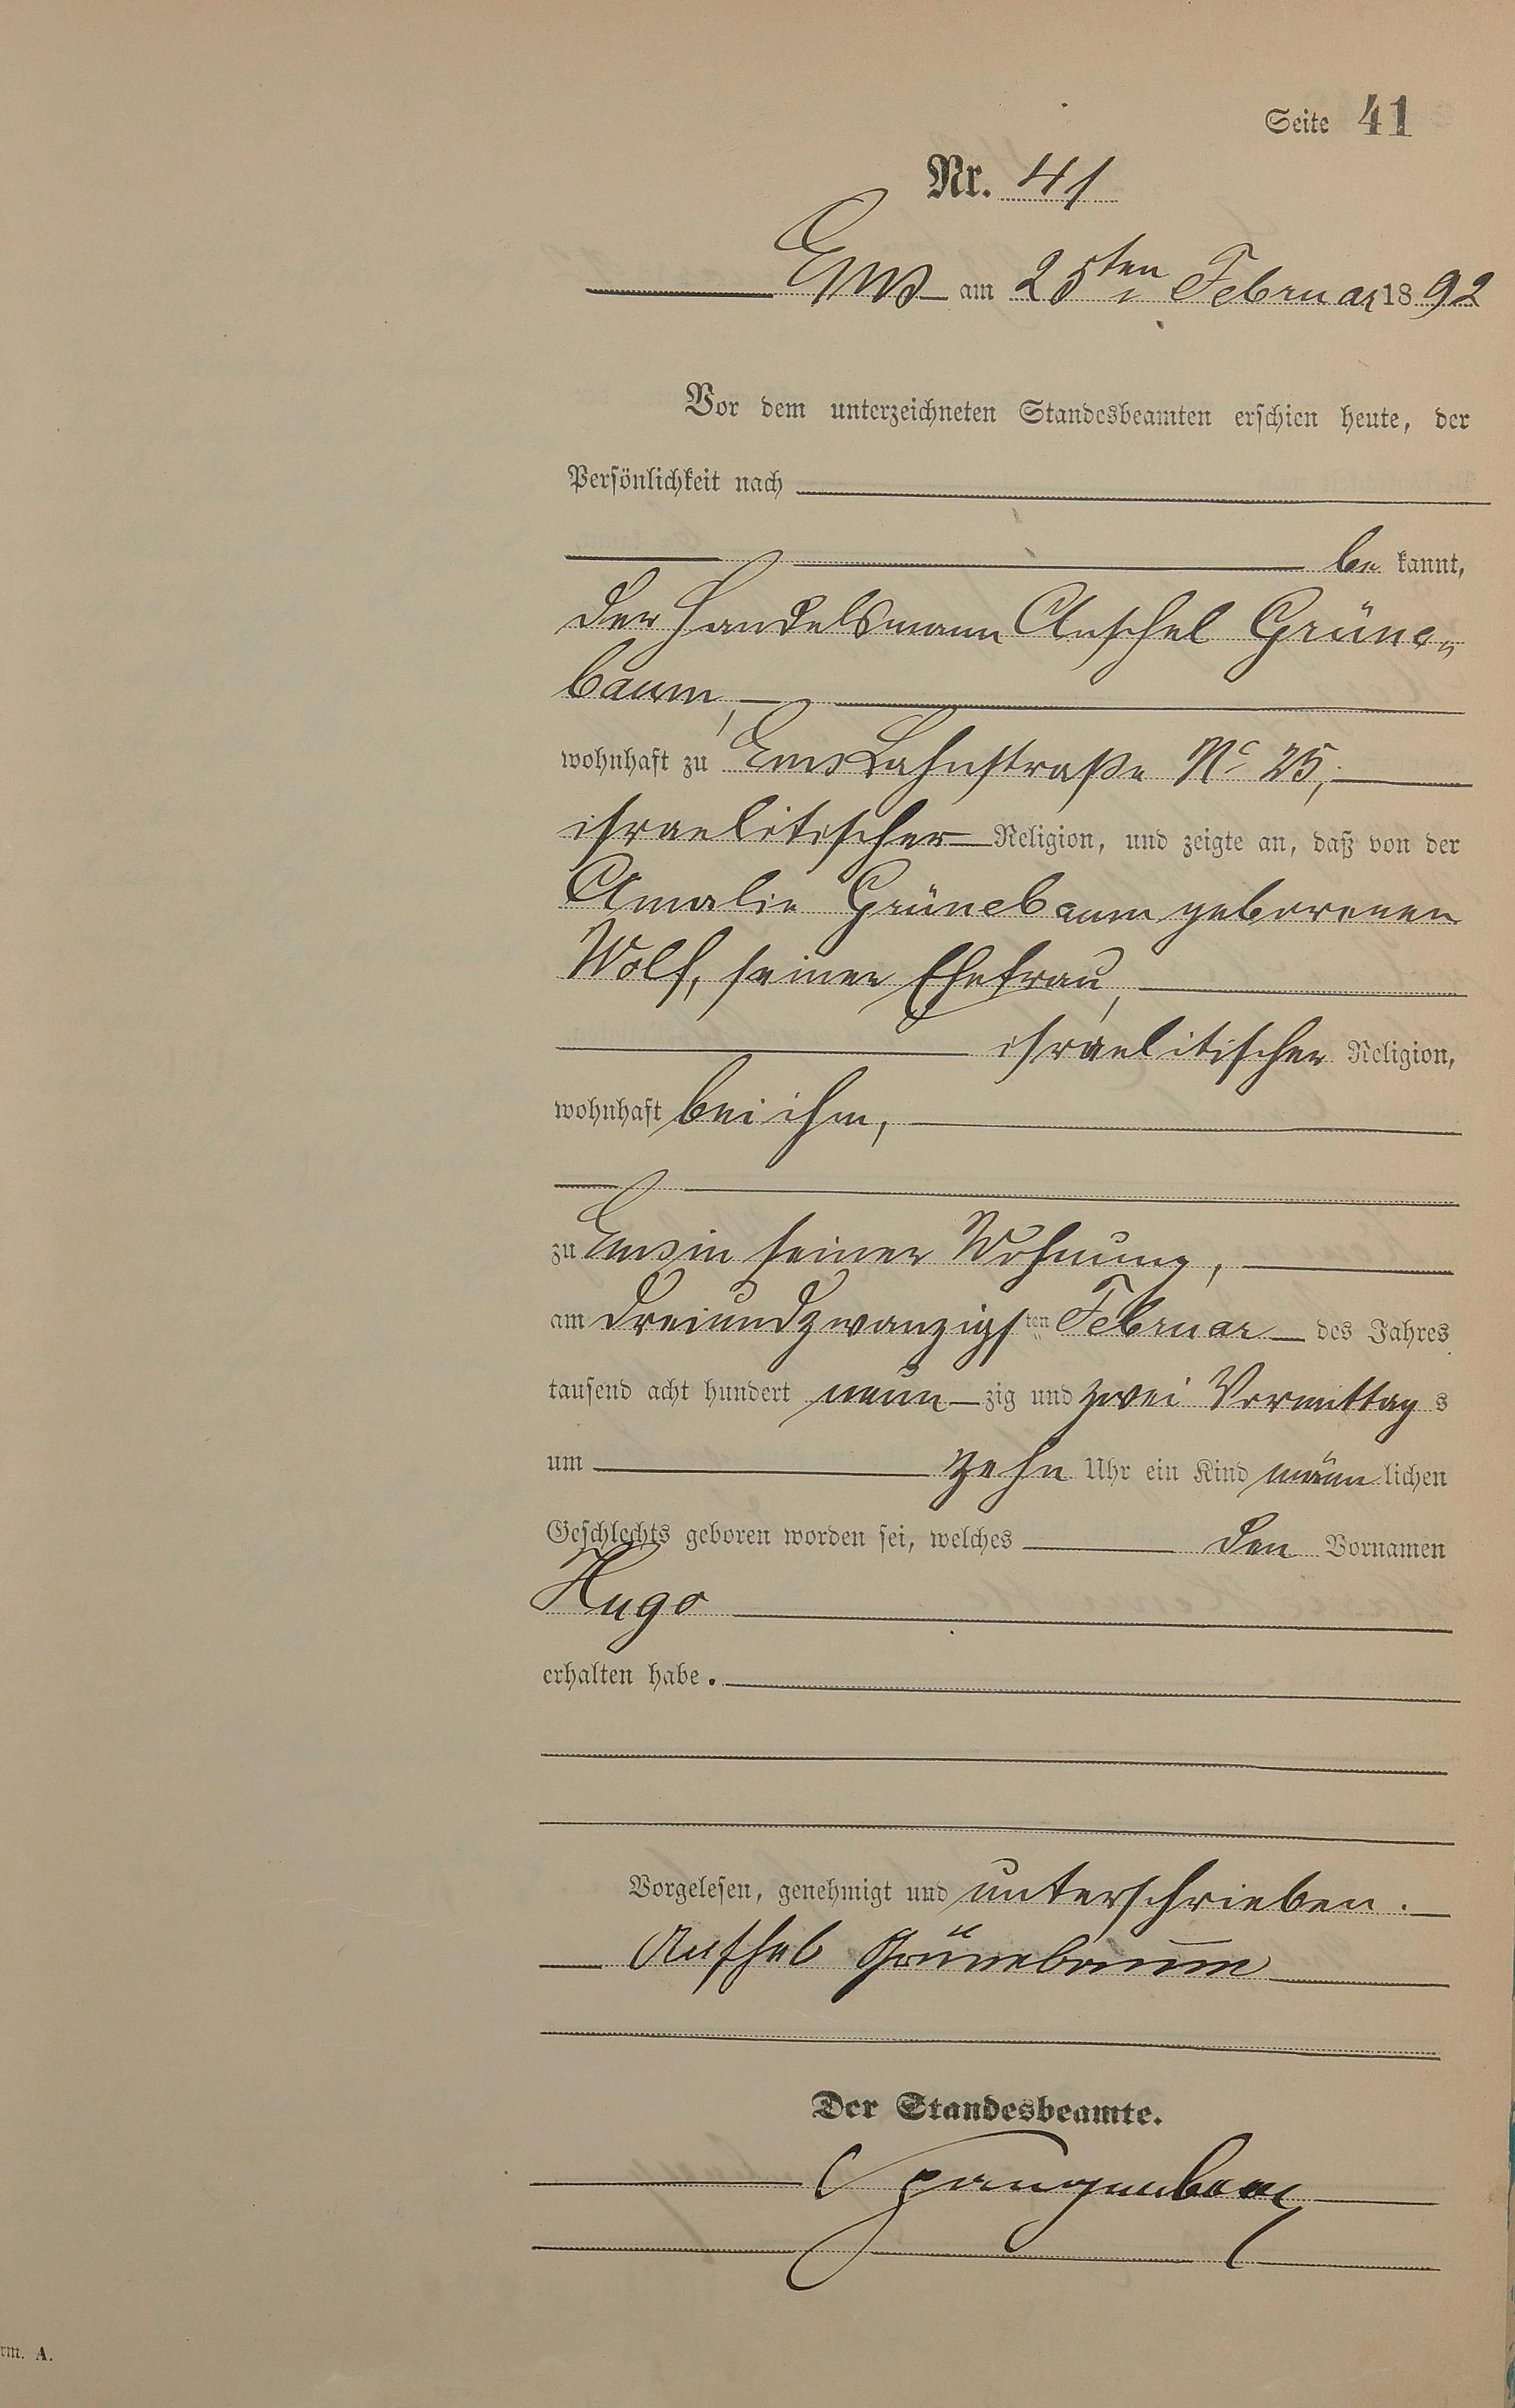 Seite 41
Nr. 41
Ems am 25ten Februar 1892
Vor dem unterzeichneten Standesbeamten erschien heute, der
Persönlichkeit nach
be kannt,
der Handelsmann Anschel Grüne-
baum,
wohnhaft zu Ems Lahnstraße No 25,
israelitischer Religion, und zeigte an, daß von der
Amalie Grünebaum geborenen
Wolf, seiner Ehefrau,
israelitischer Religion,
wohnhaft bei ihm,
zu Ems in seiner Wohnung,
am dreiundzwanzigsten Februar des Jahres
tausend acht hundert neunzig und zwei Vormittags
um zehn Uhr ein Kind männlichen
Geschlechts geboren worden sei, welches den Vornamen
Hugo
erhalten habe.
Vorgelesen, genehmigt und unterschrieben.
Anschel Grünebaum
Der Standesbeamte.
Spangenberg
rm. A.